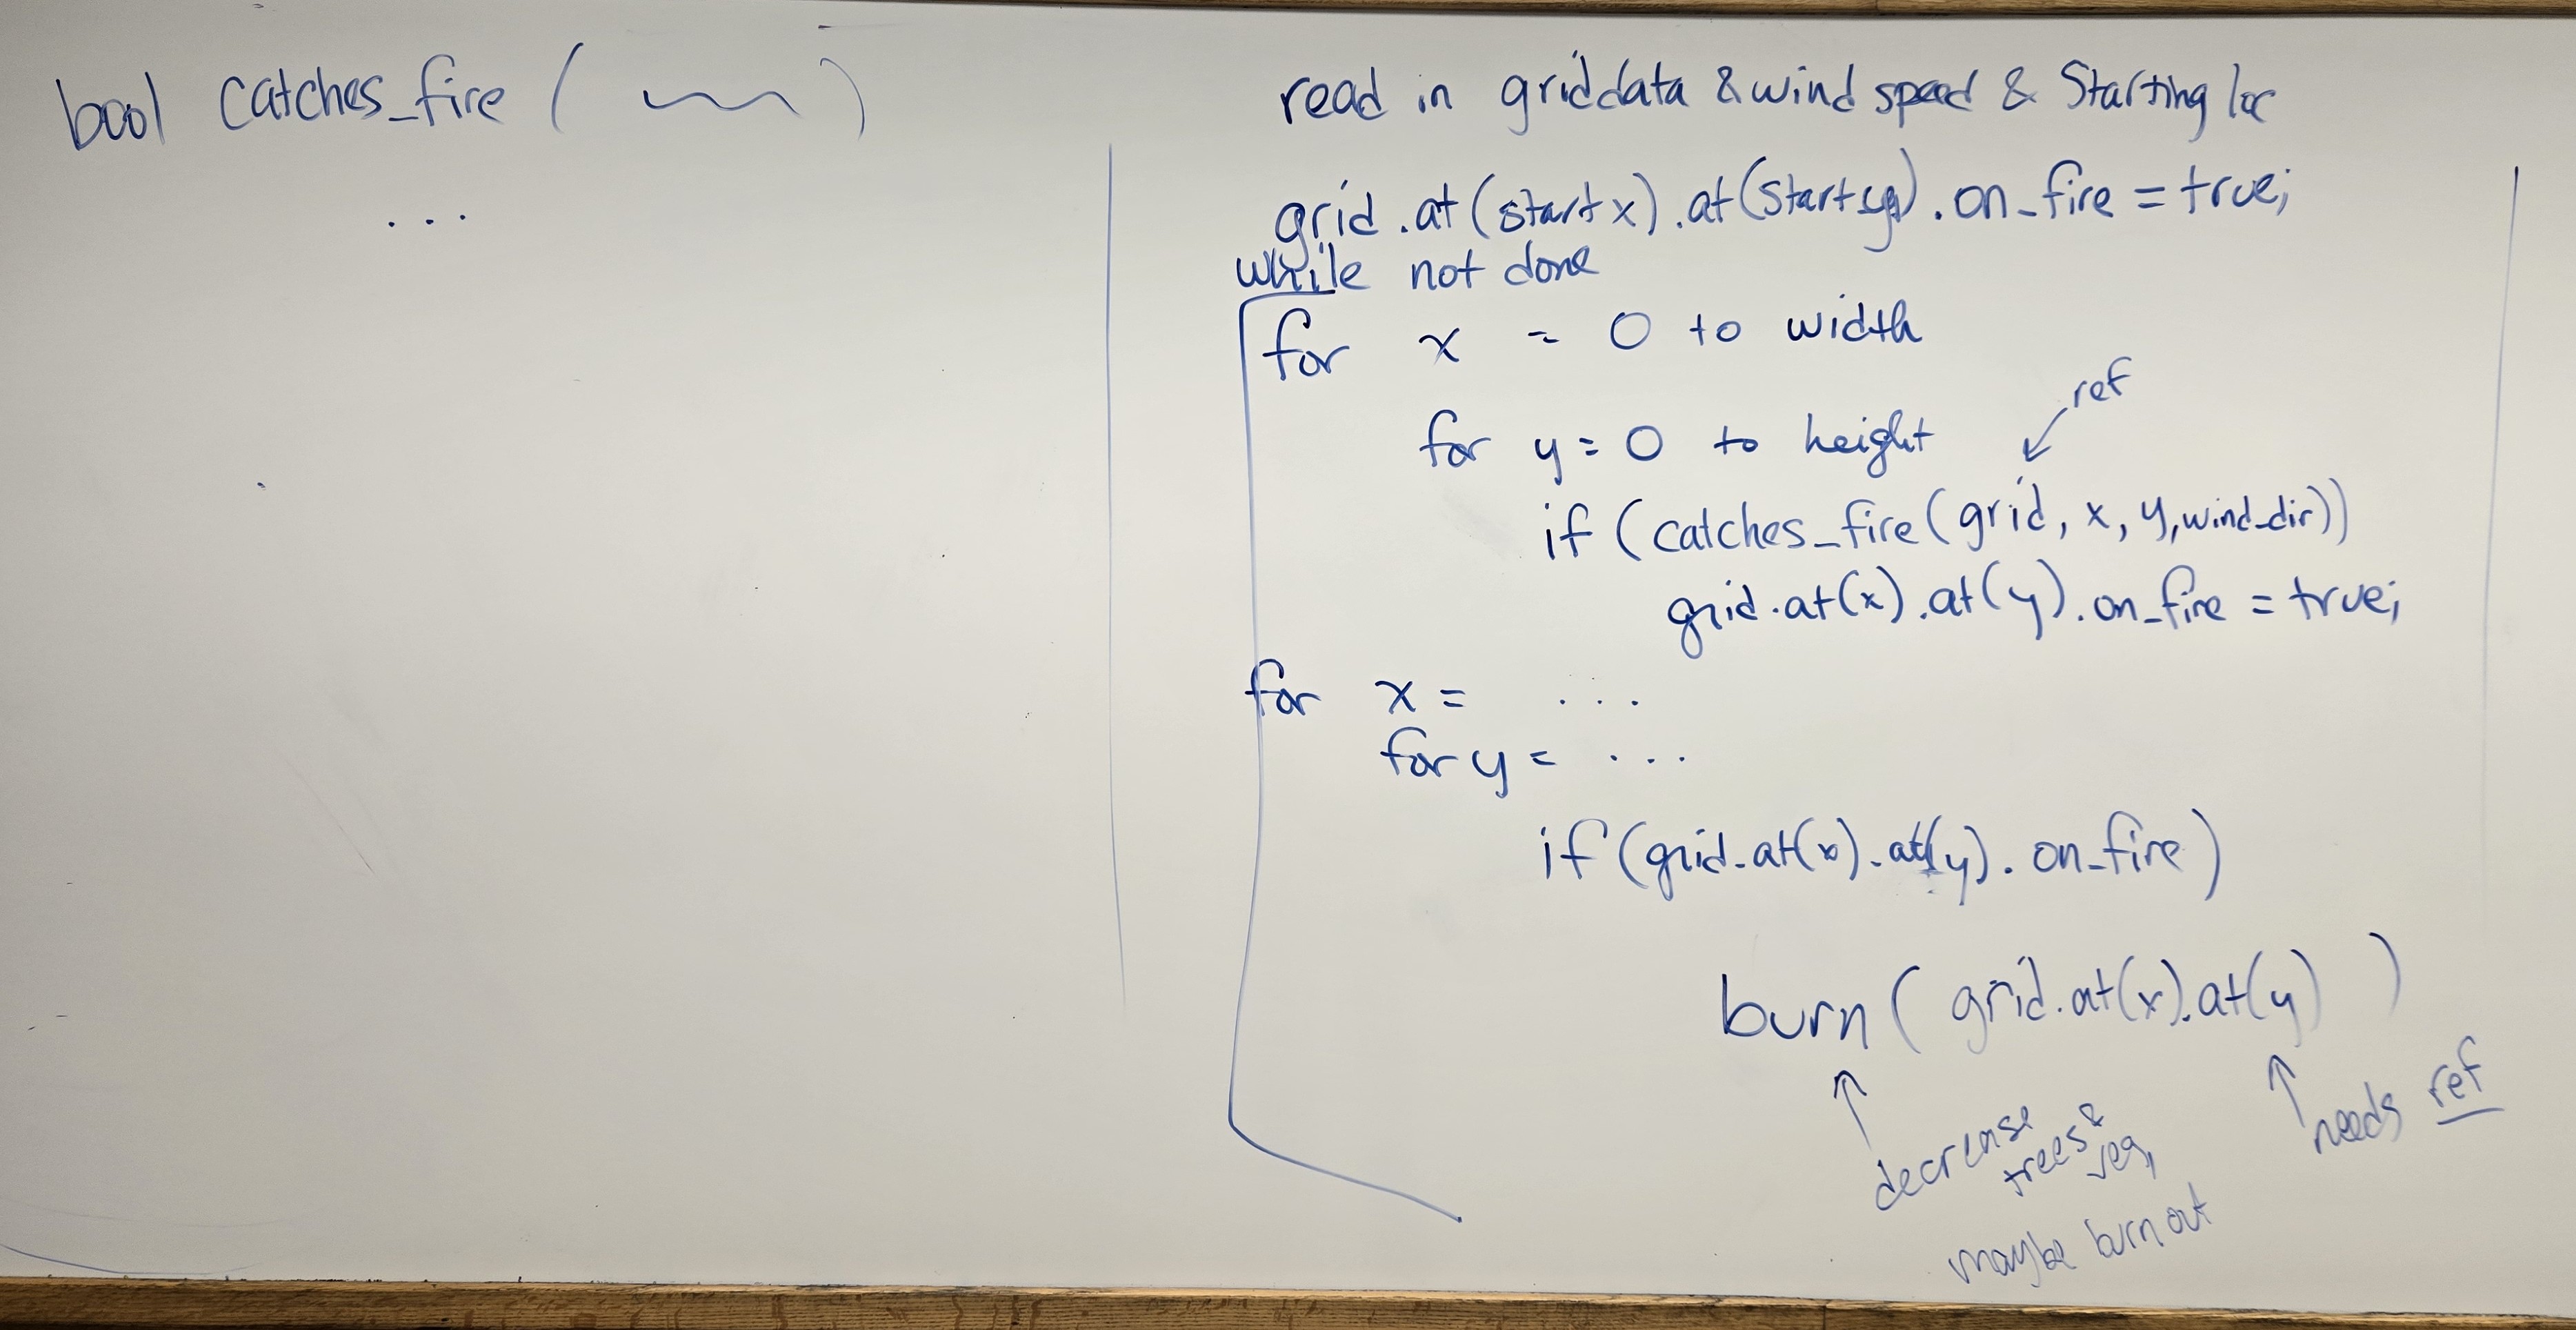 bool catches_fire ( )
...
read in grid data & wind speed & Starting loc
grid.at(startx).at(starty).on_fire = true;
while not done
for x = 0 to width
ref
for y = 0 to height
if (catches_fire(grid, x, y, wind_dir))
grid.at(x).at(y).on_fire = true;
for x = ...
for y = ...
if (grid.at(x).at(y).on_fire)
burn( grid.at(x).at(y) )
decrease
trees &
veg,
maybe burn out
needs ref